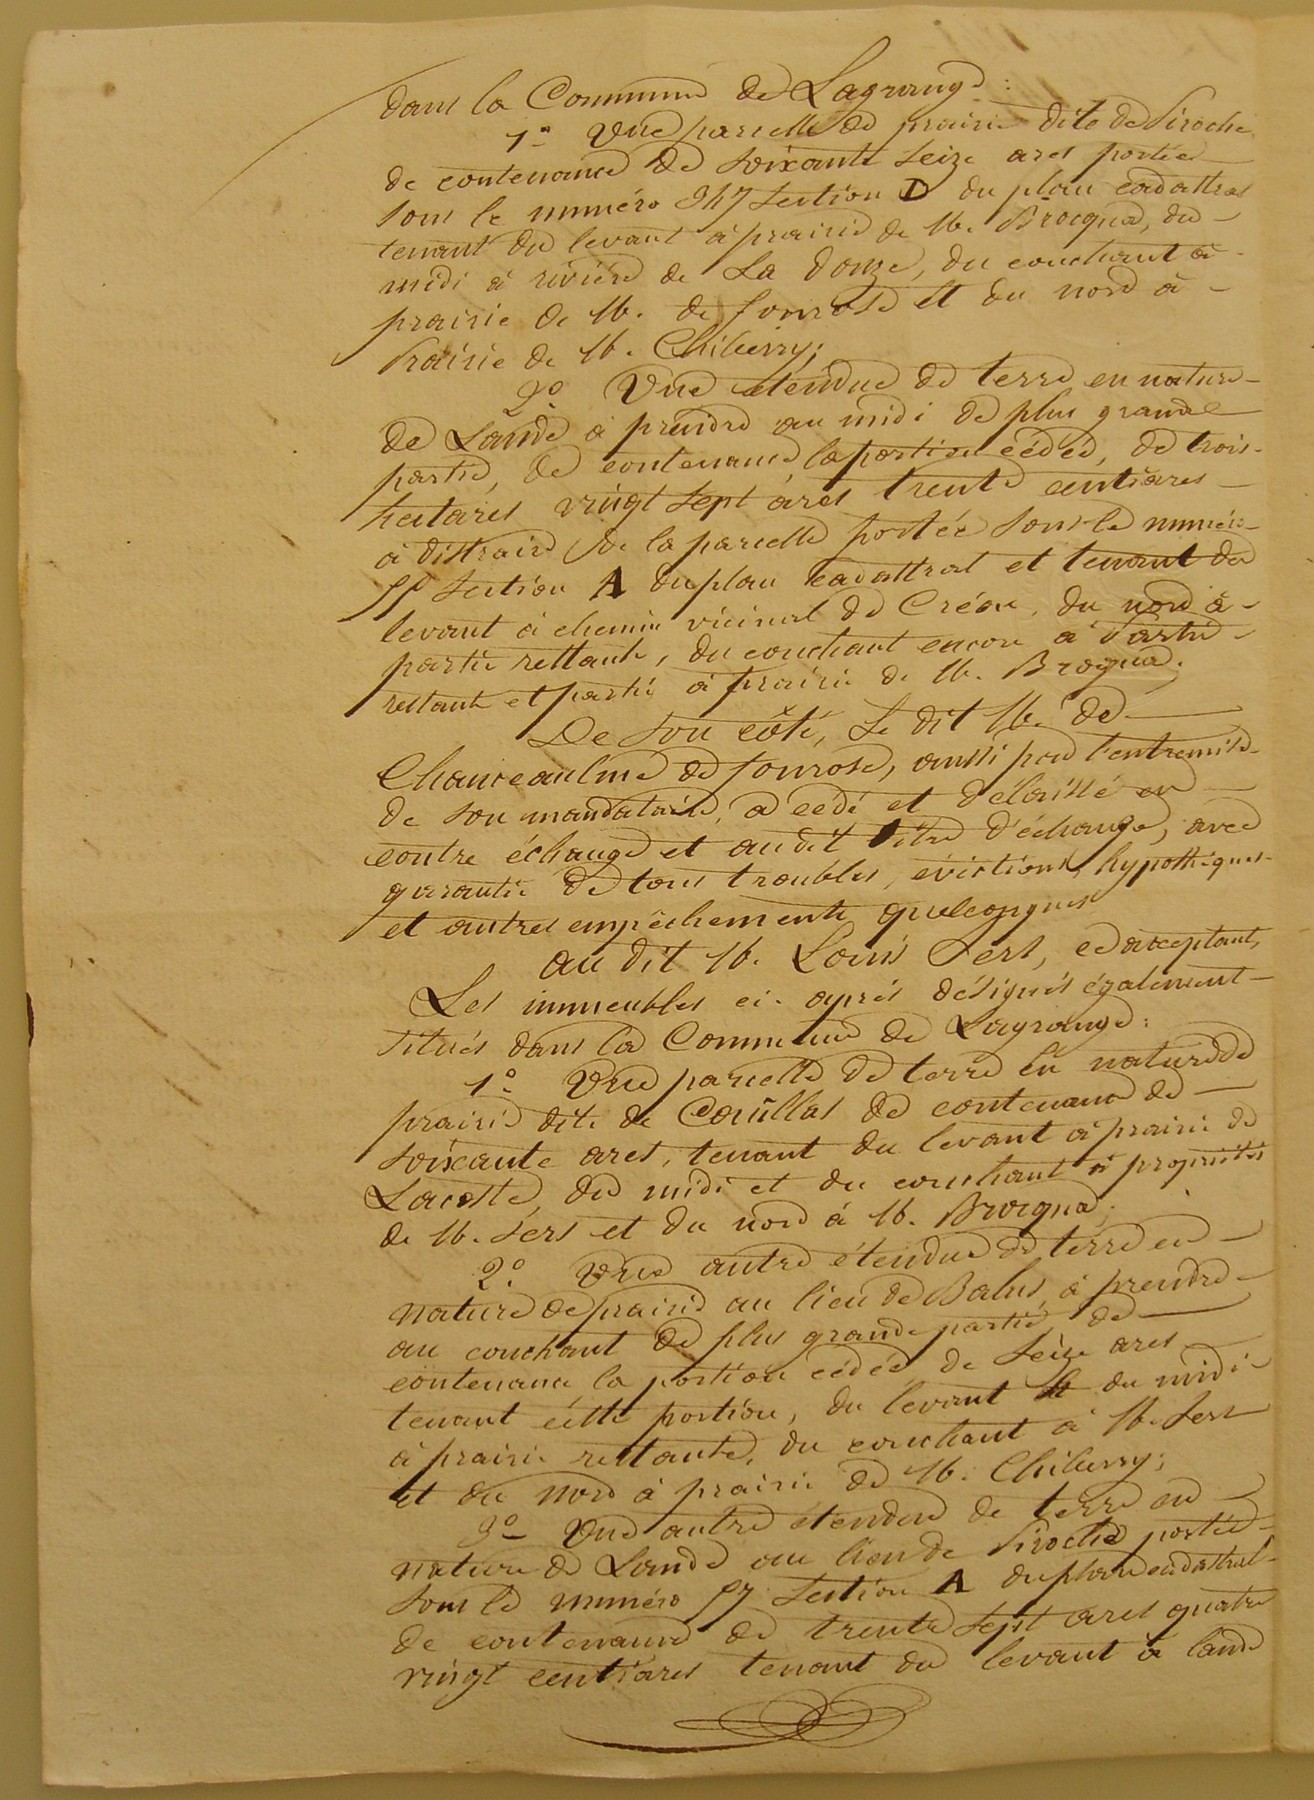 dans la Commune de Lagrange :
1º Une parcelle de prairie dite de Piroche
de contenance de soixante seize ares portée
sous le numéro 347 section D du plan cadastral
tenant du levant à prairie de M. Brocqua, du
midi à rivière de La Douze, du couchant à
prairie de M. de fonrose et du nord à
Prairie de M. Chiberry ;
2º Une étendue de terre en nature
de Lande à prendre au midi de plus grande
partie, de contenance la portion cédée, de trois
hectares vingt sept ares trente centiares
à distraire de la parcelle portée sous le numéro
55 section A du plan cadastral et tenant du
levant à chemin vicinal de Créon, du nord à
partie restante, du couchant encore à Partie
restante et partie à prairie de M. Brocqua.
De son côté, Le dit M. de
Chauceaulme de fonrose, aussi par l'entremise
de son mandataire, a cédé et délaissé en
contre échange et au dit titre d'échange, avec
garantie de tous troubles, évictions, hypothèques
et autres empêchements quelconques
au dit M. Louis Sers, ce acceptant,
Les immeubles ci-après désignés également
situés dans la Commune de Lagrange :
1º Une parcelle de terre en nature de
prairie dite de Couillas de contenance de
soixante ares, tenant du levant à prairie de
Lacoste, du midi et du couchant à propriétés
de M. Sers et du nord à M. Brocqua ;
2º. Une autre étendue de terre en
nature de prairie au lieu de Balus, à prendre
au couchant de plus grande partie, de
contenance la portion cédée de seize ares
tenant cette portion, du levant et du midi
à prairie restante, du couchant à M. Sers
et du nord à prairie de M. Chiberry ;
3º Une autre étendue de terre en
nature de Lande au lieu de Piroche portée
sous le numéro 57 section A du plan cadastral
de contenance de trente sept ares quatre
vingt centiares tenant du levant à lande